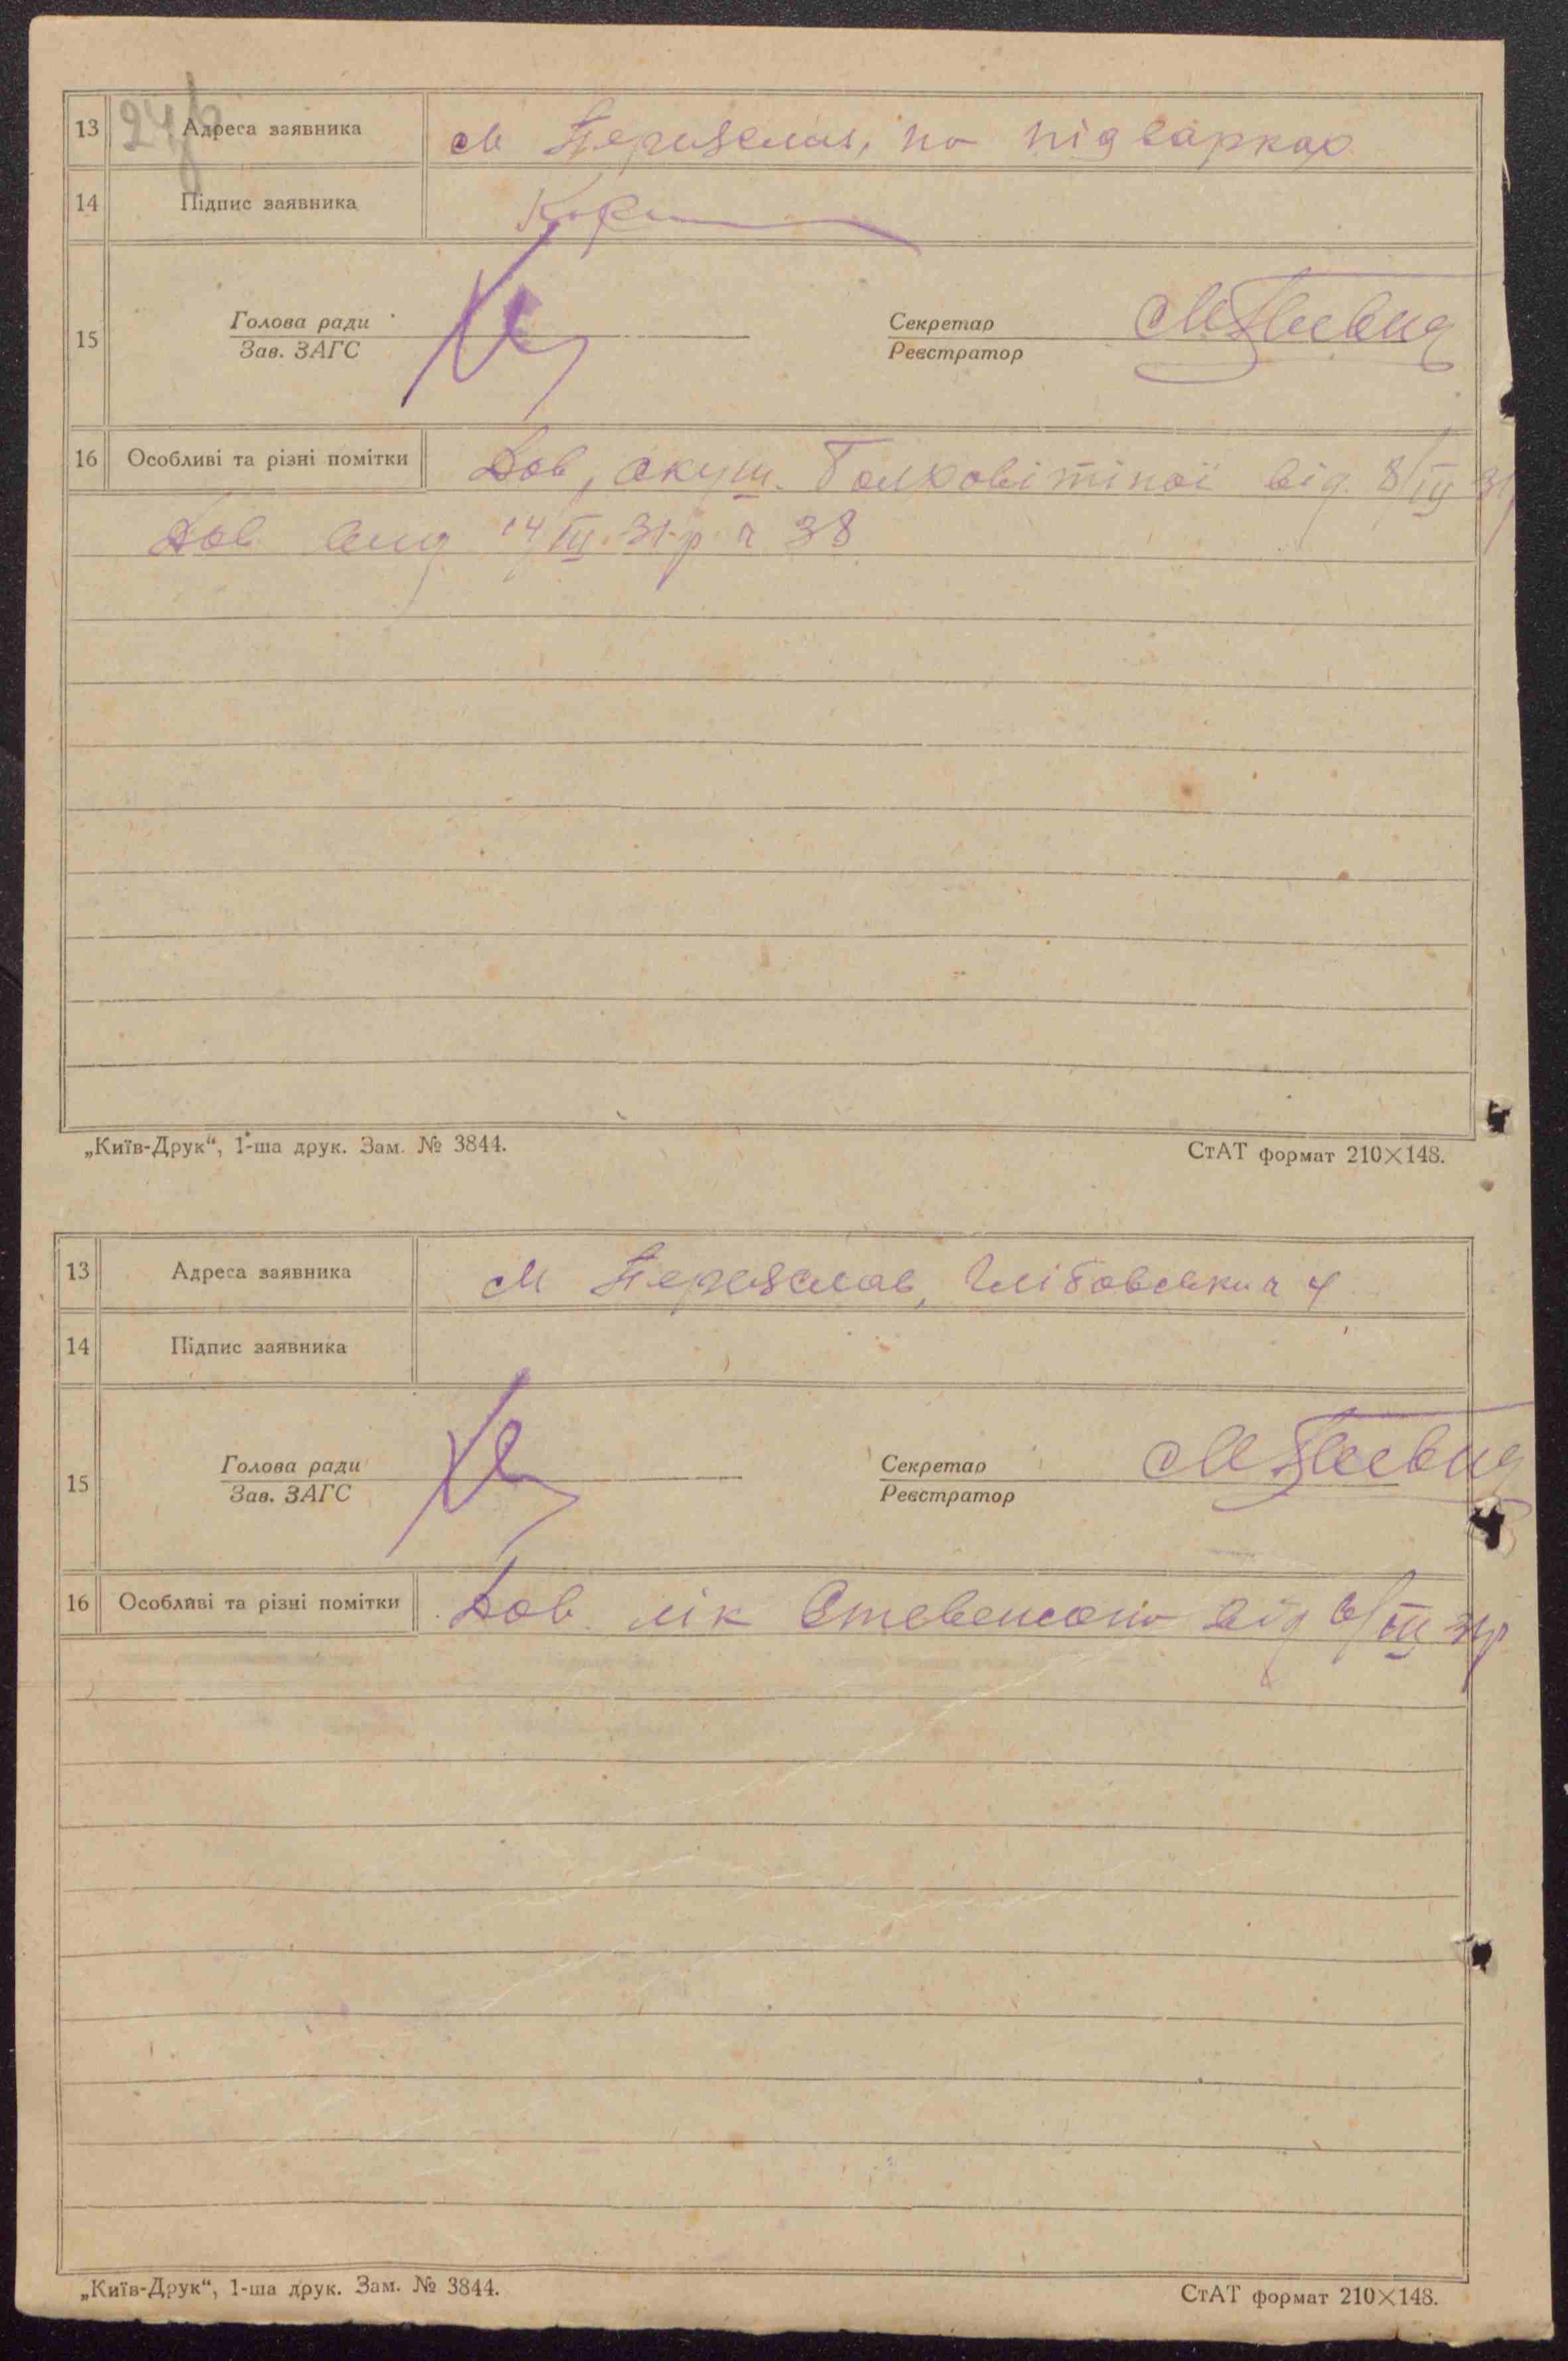 13 Адреса заявника м Переяслав, по підваркар
14 Підпис заявника
15 Голова ради
Зав. ЗАГС
Секретар
Реєстратор
16 Особливі та різні помітки Дов, акуш. від 8/III 31
Дов вид 14/III 31 р ч 38
„Київ-Друк“, 1-ша друк. Зам. № 3844. СтАТ формат 210×148.
13 Адреса заявника м Переяслав, ч 4
14 Підпис заявника
15 Голова ради
Зав. ЗАГС
Секретар
Реєстратор
16 Особливі та різні помітки Дов. лік від 6/III 31р
„Київ-Друк“, 1-ша друк. Зам. № 3844. СтАТ формат 210×148.